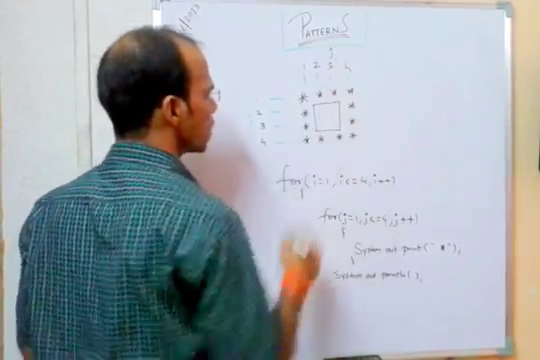 PATTERNS
j
1 2 3 4
* * * *
2 * *
3 * *
4 * * * *
for(i=1, i<=4, i++)
{
for(j=1, j<=4, j++)
{
System.out.print("*");
}
System.out.println();